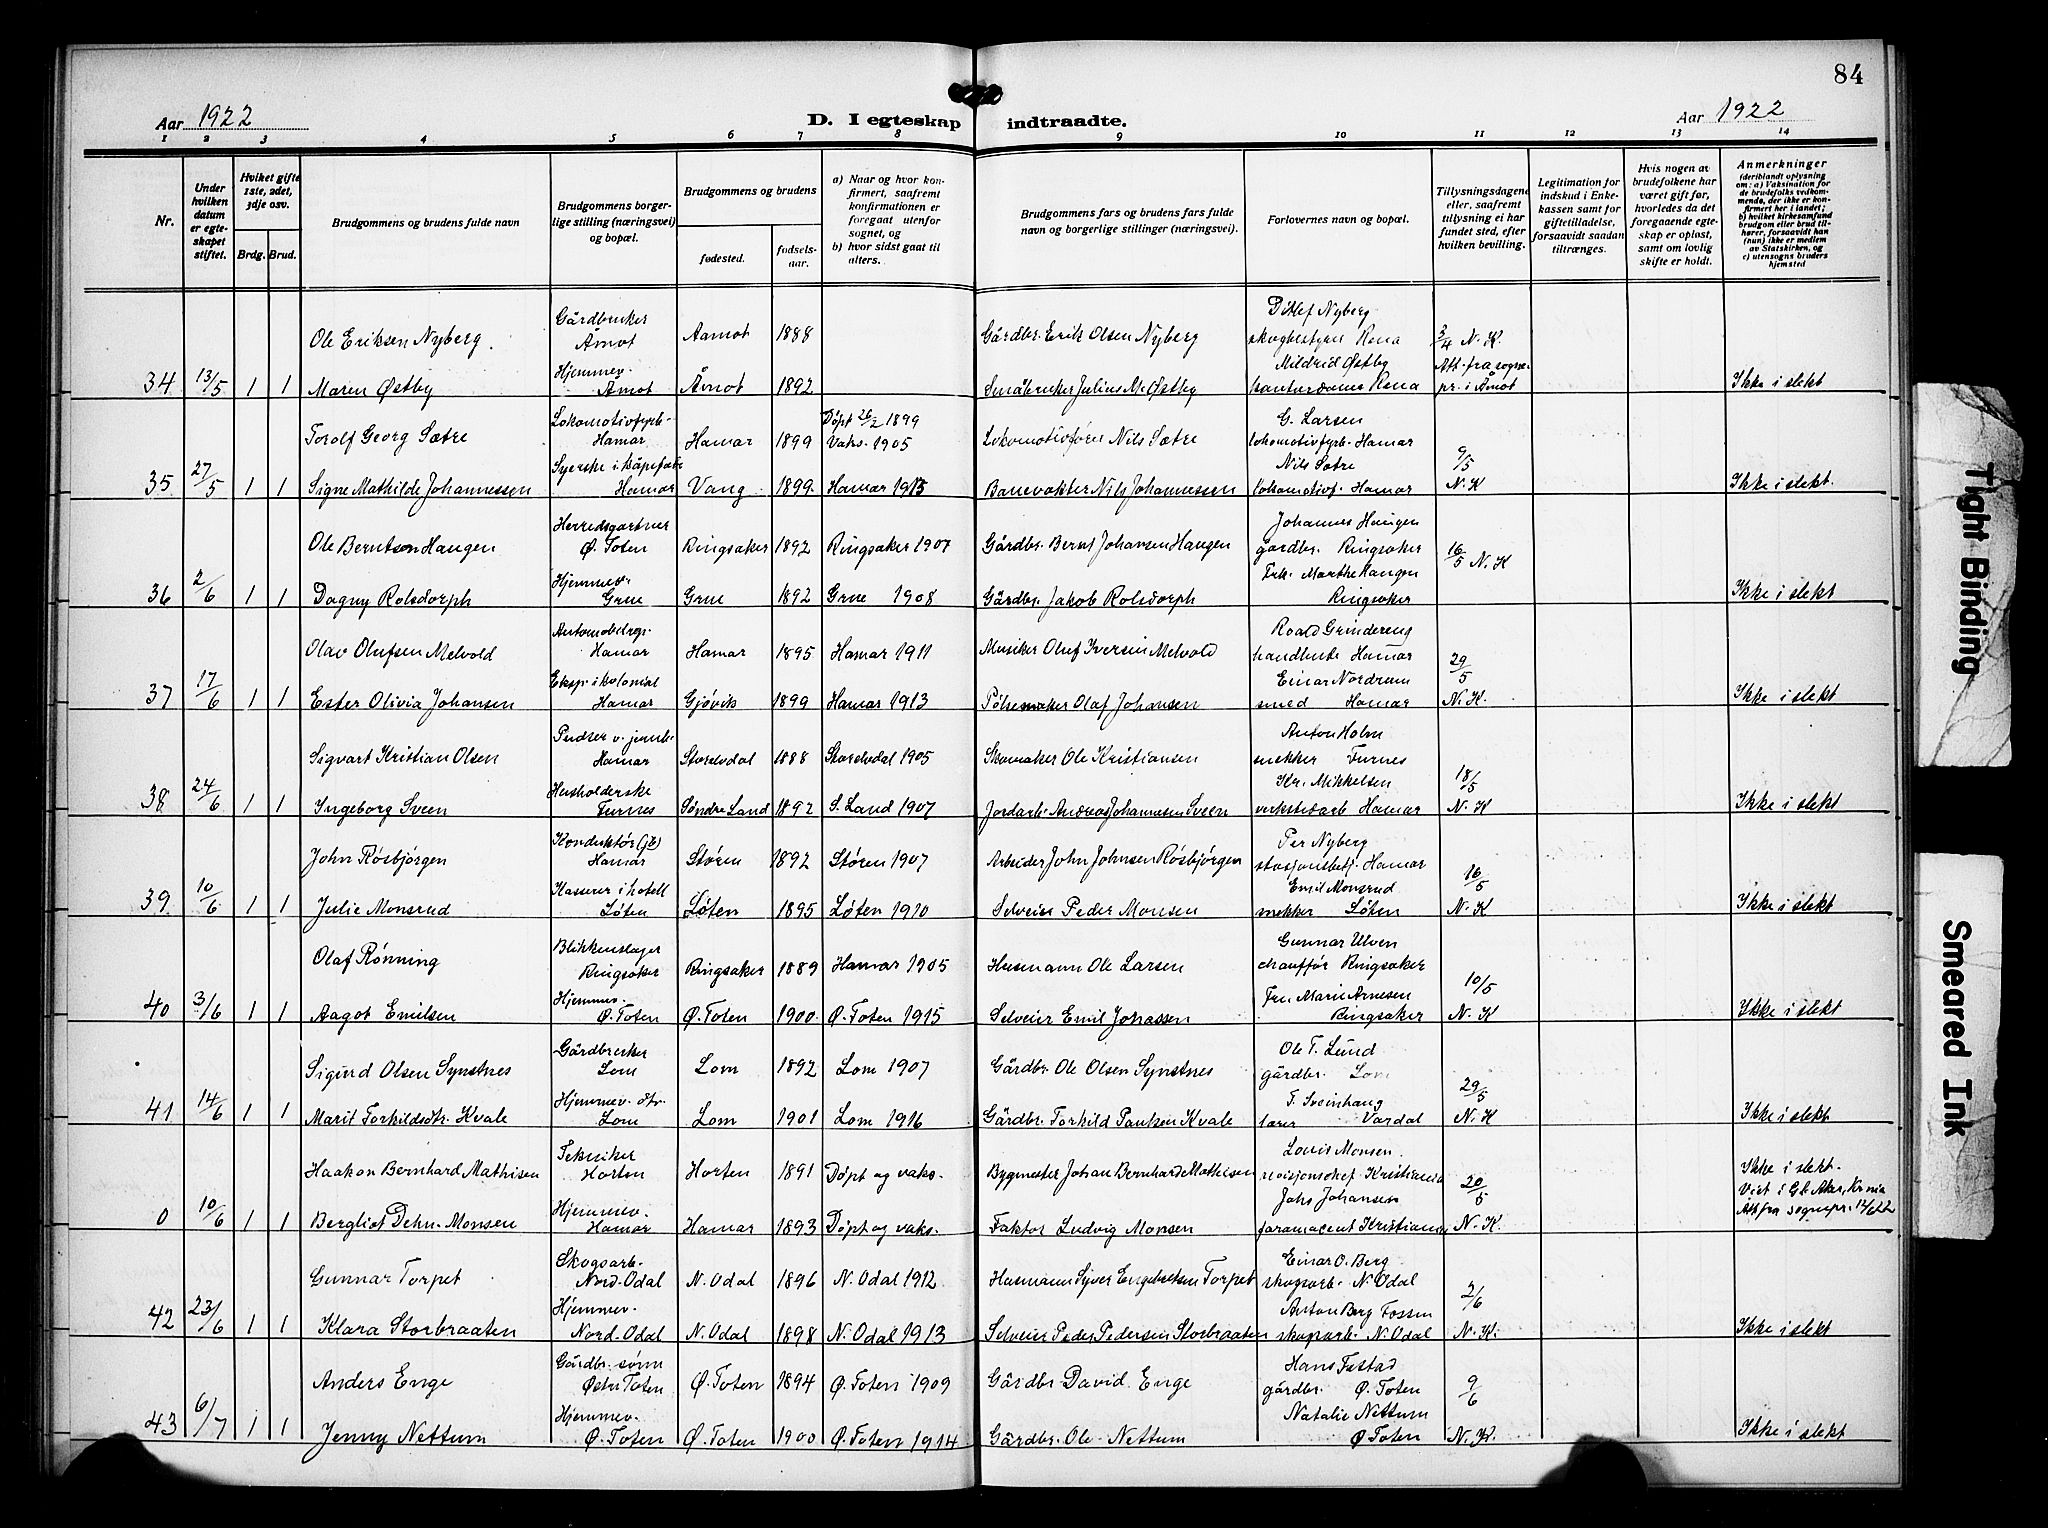 84
Aar 1922 D. I egteskap indtraadte. Aar 1922
1 2 3 4 5 6 7 8 9 10 11 12 13 14
Nr.
Under hvilken datum er egteskapet stiftet.
Hviket gifte 1ste, 2det, 3dje osv.
Brdg. Brud.
Brudgommens og brudens fulde navn
Brudgommens borgerlige stilling (næringsvei) og bopæl.
Brudgommens og brudens
fødested.
fødselsaar.
a) Naar og hvor konfirmert, saafremt konfirmationen er foregaat utenfor sognet, og
b) hvor sidst gaat til alters.
Brudgommens fars og brudens fars fulde navn og borgerlige stillinger (næringsvei).
Forlovernes navn og bopæl.
Tillysningsdagene eller, saafremt tillysning ei har fundet sted, efter hvilken bevilling.
Legitimation for indskud i Enkekassen samt for giftetilladelse, forsaavidt saadan tiltrænges.
Hvis nogen av brudefolkene har været gift før, hvorledes da det foregaaende egteskap er opløst, samt om lovlig skifte er holdt.
Anmerkninger (deriblandt oplysning om: a) Vaksination for de brudefolks vedkommende, der ikke er konfirmert her i landet; b) hvilket kirkesamfund brudgom eller brud tilhører, forsaavidt han (hun) ikke er medlem av Statskirken, og c) utensogns bruders hjemsted
Ole Eriksen Nyberg. Gårdbruker Åmot Aamot 1888 Gårdbr. Erik Olsen Nyberg Ditlef Nyberg skogbestyrer Rena 3/4 N.K.
34 13/5 1 1 Maren Østby Hjemmev. Åmot Åmot 1892 Småbruker Julius M. Østby Mildrid Østby Rena Att. fra sognepr. i Åmot Ikke i slekt
Torolf Georg Sætre Lokomotivfyrb. Hamar Hamar 1899 Døpt 26/2 1899 Vaks. 1905 Lokomotivfører Nils Sætre G. Larsen lokomotivfyrb. Hamar 9/5
35 27/5 1 1 Signe Mathilde Johannessen Syerske i kåpefabr. Hamar Vang 1899 Hamar 1913 Banevokter Nils Johannessen Nils Sætre lokomotivf. Hamar N.K Ikke i slekt.
Ole Berntsen Haugen Herredsgartner Ø. Toten Ringsaker 1892 Ringsaker 1907 Gårdbr. Bernt Johansen Haugen Johannes Haugen gårdbr. Ringsaker 16/5 N.K
36 2/6 1 1 Dagny Rolsdorph Hjemmev. Grue Grue 1892 Grue 1908 Gårdbr. Jakob Rolsdorph Frk. Marthe Haugen Ringsaker Ikke i slekt
Olav Olufsen Melvold Hamar Hamar 1895 Hamar 1911 Musiker Oluf Iversen Melvold Roald Grindereng Hamar 29/5
37 17/6 1 1 Ester Olivia Johansen Eksp. i kolonial Hamar Gjøvik 1899 Hamar 1913 Pølsemaker Olaf Johansen Einar Nordrum smed Hamar N.K. Ikke i slekt
Sigvart Kristian Olsen Pudser v. jernb. Hamar Storelvdal 1888 Storelvdal 1905 Skomaker Ole Kristiansen Anton Holm snekker Furnes 18/5
38 24/6 1 1 Ingeborg Sveen Husholderske Furnes Søndre Land 1892 S. Land 1907 Jordarb. Andreas Johannesen Sveen Kr. Mikkelsen verkstedarb Hamar N.K Ikke i slekt
John Røsbjørgen Konduktør (jb) Hamar Støren 1892 Støren 1907 Arbeider John Johnsen Røsbjørgen Per Nyberg stasjonsbetj. Hamar 16/5
39 10/6 1 1 Julie Monsrud Kasserer i hotell Løten Løten 1895 Løten 1910 Selveier Peder Monsen Emil Monsrud snekker Løten N.K Ikke i slekt
Olaf Rønning Blikkenslager Ringsaker Ringsaker 1889 Hamar 1905 Husmann Ole Larsen Gunnar Ulven chauffør Ringsaker 10/5
40 3/6 1 1 Aagot Emilsen Hjemmev. Ø. Toten Ø. Toten 1900 Ø. Toten 1915 Selveier Emil Johassen Fru Marie Arnesen Ringsaker N.K Ikke i slekt
Sigurd Olsen Synstnes Gårdbruker Lom Lom 1892 Lom 1907 Gårdbr. Ole Olsen Synstnes Ole T. Lund gårdbr. Lom 29/5
41 14/6 1 1 Marit Torkildsdtr. Kvale Hjemmev. dtr. Lom Lom 1901 Lom 1916 Gårdbr. Torkild Paulsen Kvale T. Sveinhaug lærer Vardal N.K Ikke i slekt
Haakon Bernhard Mathisen Tekniker Horten Horten 1891 Døpt og vaks. Bygmester Johan Bernhard Mathisen Louis Monsen. revisjonschef Kristiania 20/5 Ikke i slekt.
0 10/6 1 1 Bergliot Dehn-Monsen Hjemmev. Hamar Hamar 1893 Døpt og vaks. Faktor Ludvig Monsen Johs Johansen farmaceut Kristiania N.K. Viet i Gl. Aker, Kr.nia Att fra sognepr. 12/6 22
Gunnar Torpet Skogsarb. Nord-Odal N. Odal 1896 N. Odal 1912 Husmann Syver Engebretsen Torpet Einar O. Berg skogsarb. N. Odal 2/6
42 23/6 1 1 Klara Storbraaten Hjemmev. Nord. Odal N. Odal 1898 N. Odal 1913 Selveier Peder Pedersen Storbraaten Anton Berg Fossen skogarb. N. Odal N.K. Ikke i slekt
Anders Enge Gårdbr. sønn Østre Toten Ø. Toten 1894 Ø. Toten 1909 Gårdbr David. Enge Hans Festad gårdbr. Ø. Toten 9/6
43 6/7 1 1 Jenny Nettum Hjemmev. Ø. Toten Ø. Toten 1900 Ø. Toten 1914 Gårdbr. Ole Nettum Natalie Nettum Ø Toten N.K. Ikke i slekt
Tight Binding
Smeared Ink